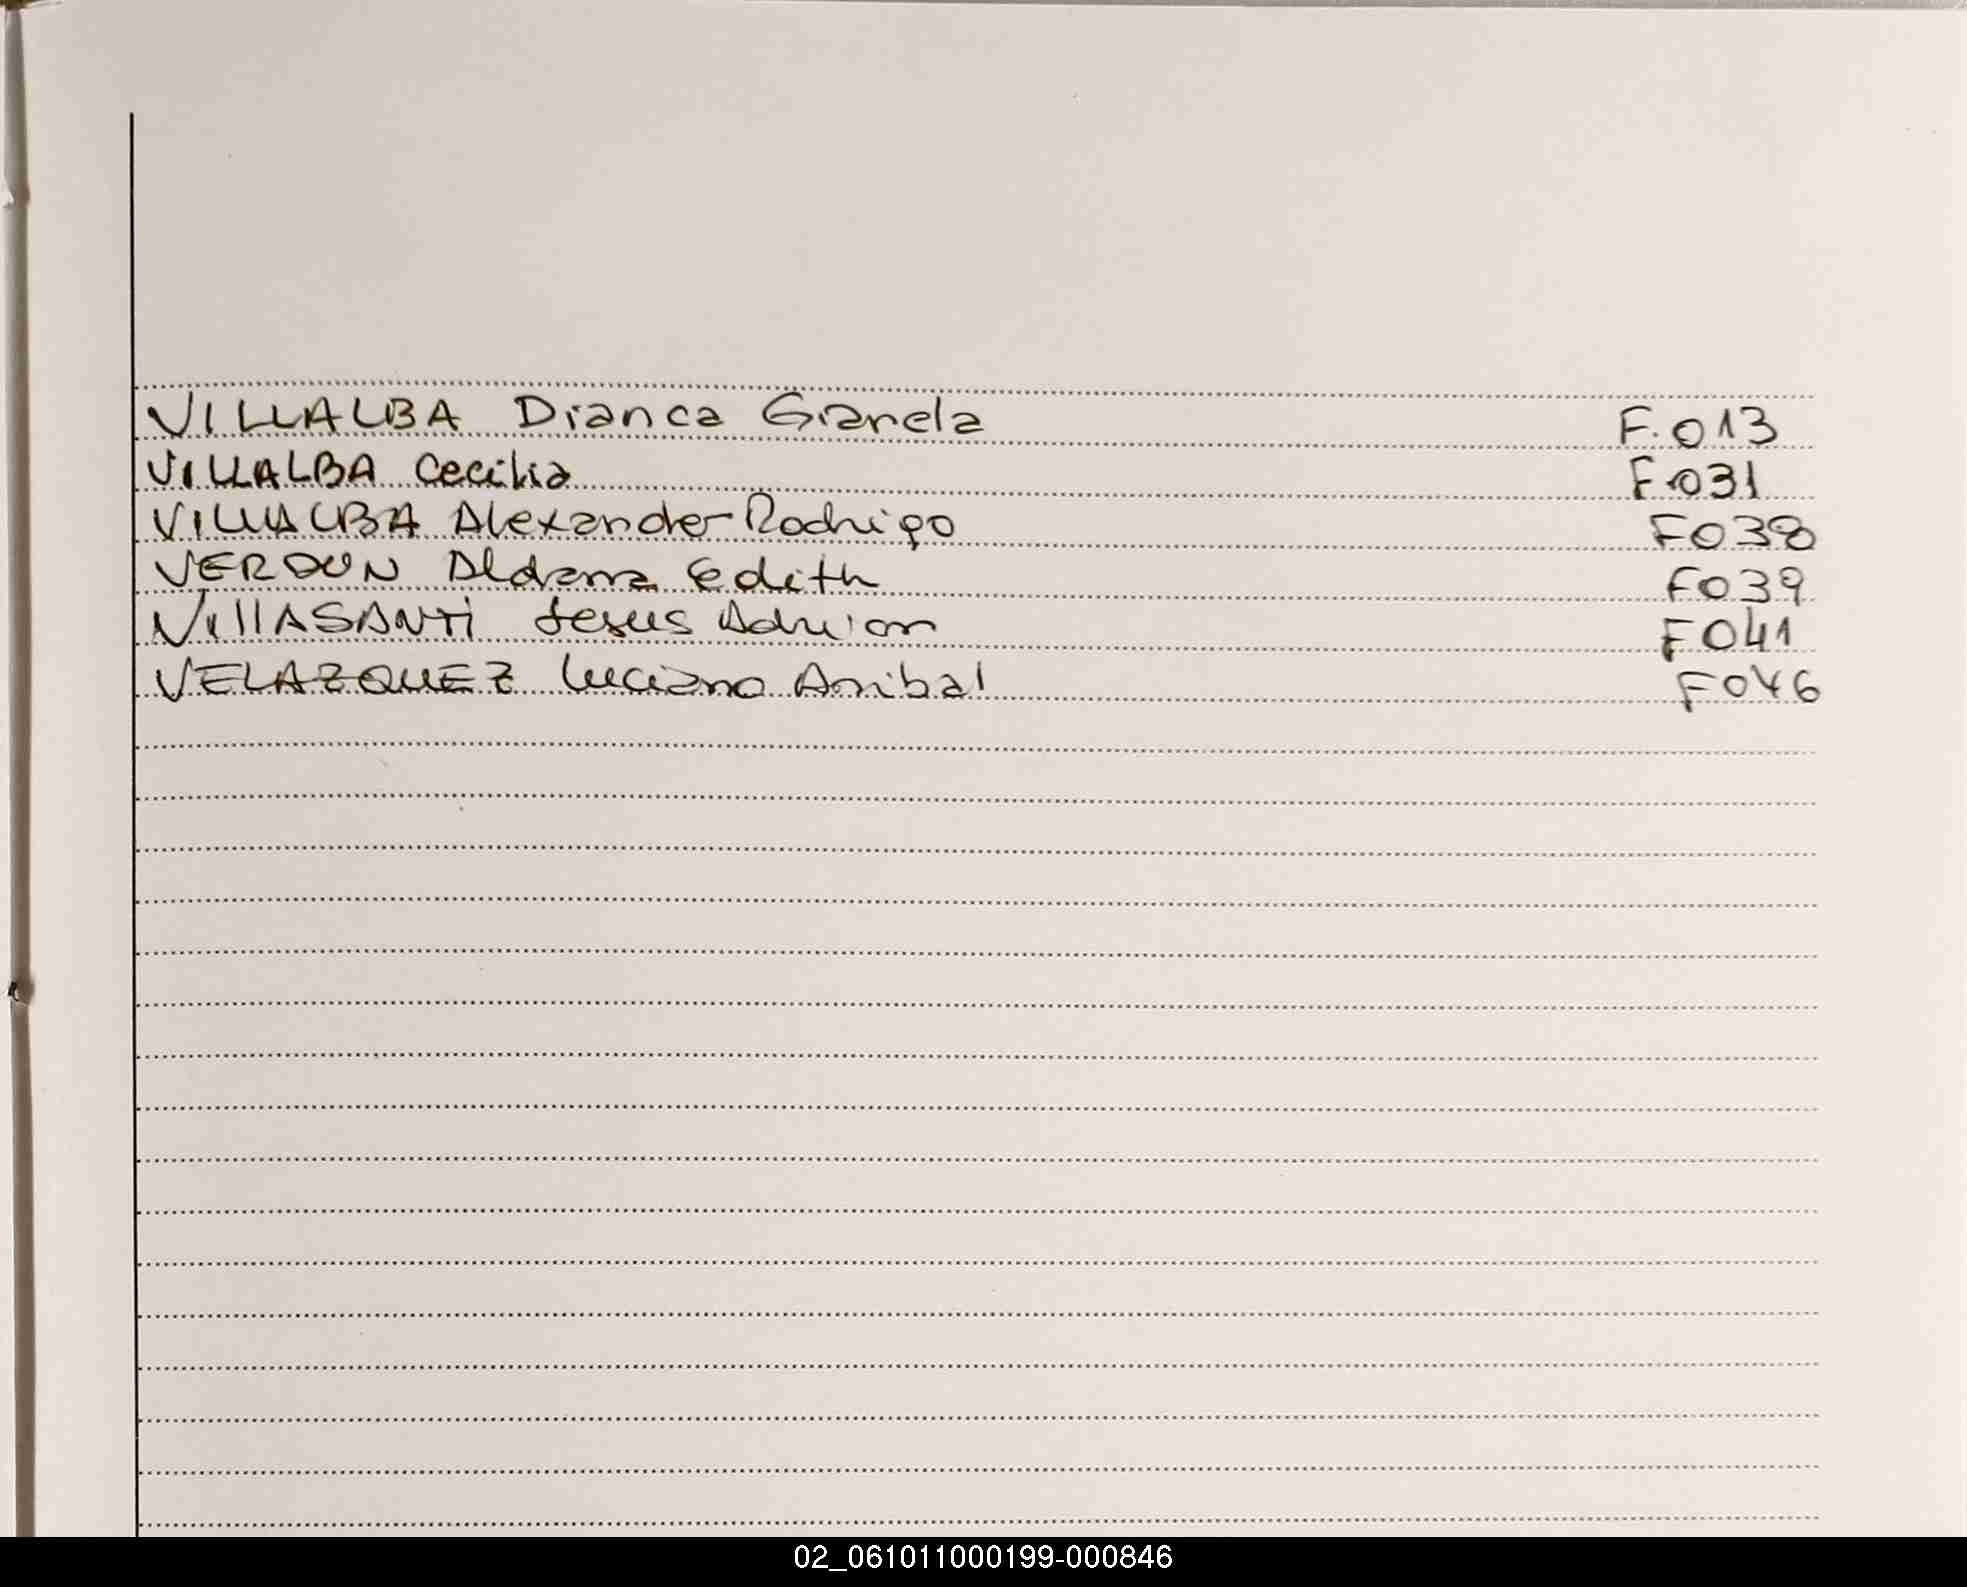 VILLALBA Dianca Gianela F.013
VILLALBA Cecilia F.031
VILLALBA Alexander Rodrigo F038
VERDUN Aldana Edith F039
VillASANTi Jesus Adrian F041
VELAZQUEZ Luciano Anibal F046
02_061011000199-000846